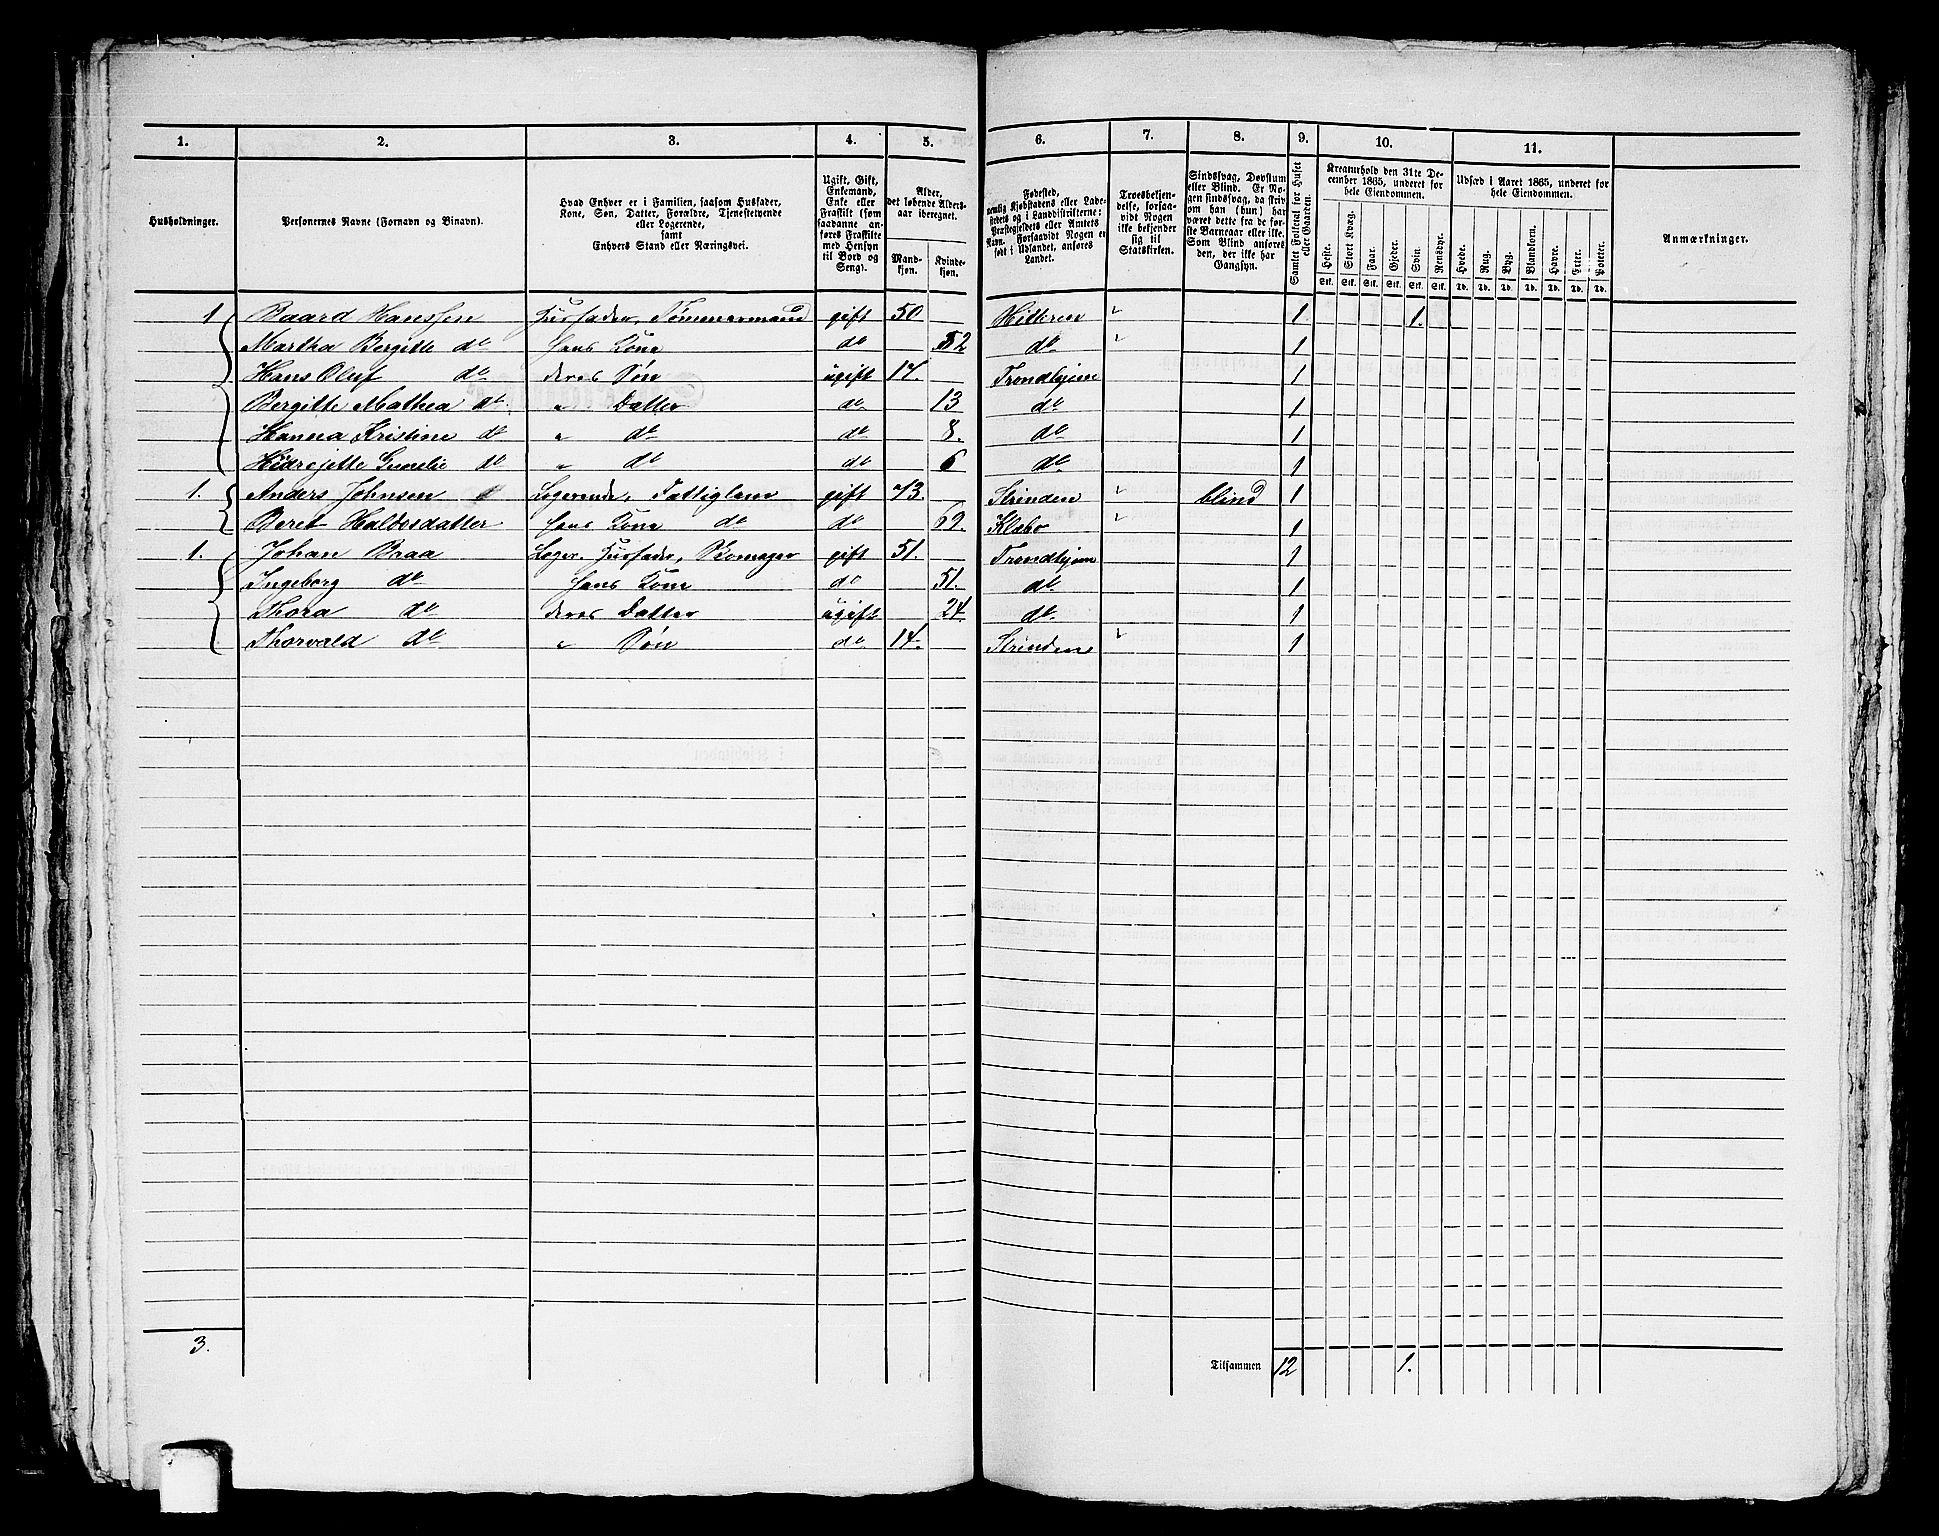 1. 2. 3. 4. 5. 6. 7. 8. 9. 10. 11.
Husholdninger.
Personernes Navne (Fornavn og Binavn).
Hvad Enhver er i Familien, saasom Husfader,
Kone, Søn, Datter, Forældre, Tjenestetyende
eller Logerende,
samt
Enhvers Stand eller Næringsvei.
Ugift, Gift,
Enkemand,
Enke eller
Fraskilt (som
saadanne an-
føres Fraskilte
med Hensyn
til Bord og
Seng).
Alder,
det løbende Alders-
aar iberegnet.
Mand-
kjøn.
Kvinde-
kjøn.
Fødested,
nemlig Kjøbstadens eller Lade-
stedets og i Landdistrikterne:
Præstegjeldets eller Amtets
Navn. Forsaavidt Nogen er
født i Udlandet, anføres
Landet.
Troesbekjen-
delse, forsaa-
vidt Nogen
ikke bekjender
sig til
Statskirken.
Sindssvag, Døvstum
eller Blind. Er No-
gen sindssvag, da skriv
om han (hun) har
været dette fra de før-
ste Barneaar eller ikke.
Som Blind anføres
den, der ikke har
Gangsyn.
Samlet Folketal for Huset
eller Gaarden.
Kreaturhold den 31te De-
cember 1865, underet for
hele Eiendommen.
Heste. Stort Kvæg. Faar. Gjeder. Svin. Rensdyr.
Stk. Stk. Stk. Stk. Stk. Stk.
Udsæd i Aaret 1865, underet for
hele Eiendommen.
Hvede. Rug. Byg. Blandkorn. Havre. Erter. Poteter.
Td. Td. Td. Td. Td. Td. Td.
Anmærkninger.
1 Baard Hanssen Husfader, Tømmermand gift 50 Hitteren " 1 1.
Martha Bergitte do hans Kone do 52 do " 1
Hans Oluf do deres Søn ugift 17. Trondhjem 1
Bergitte Mathea do " Datter do 13 do 1
Hanna Kristine do " do do 8. do 1
Gunelie do " do do 6 do 1
1. Anders Johnsen Logerende, Fattiglem gift 73. Strinden " blind 1
Beret Haldorsdatter hans Kone do do 69. Klæbo " 1
1. Johan Braa Loger. Husfader, Skomager gift 51. Trondhjem 1
Ingeborg do hans Kone do 51. do 1
Thora do deres Datter ugift 24 do 1
Thorvald do " Søn do 14. Strinden " 1
3. Tilsammen 12 1.